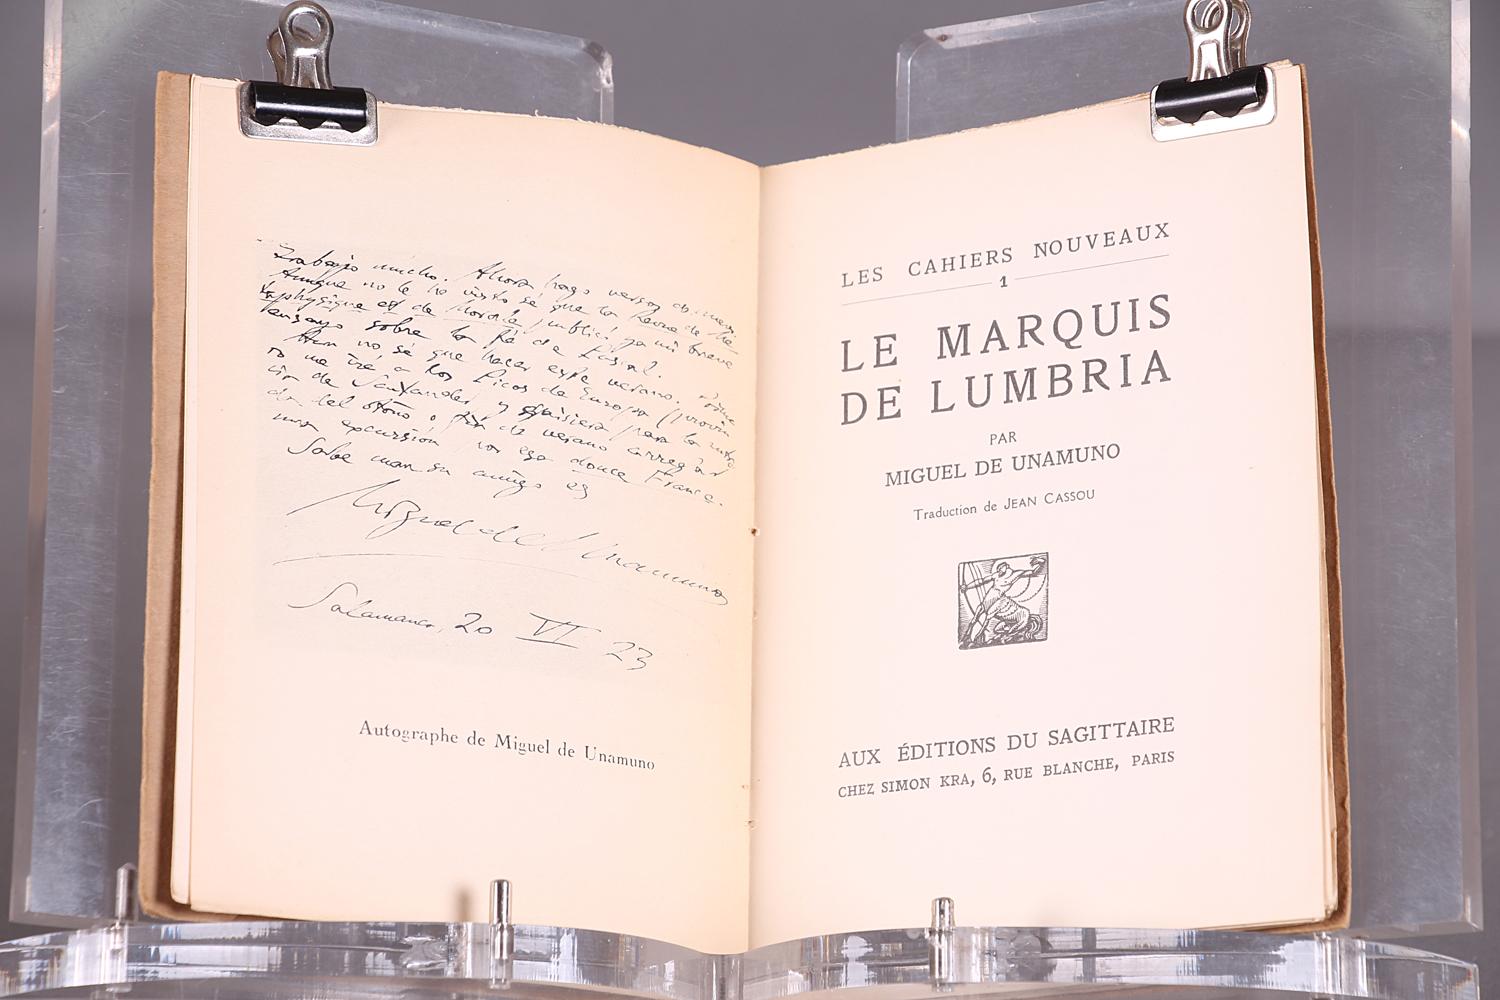 Trabajo mucho. Ahora hago versos
Aunque no le he visto sé que la Revue de Mé-
taphysique et de Morale publicó ya mi breve
ensayo sobre la Fé de Pascal.
Aun no sé que haser este verano.
me iré a los Picos de Europa (provin
cia de Santander) y quisiera para la
del otoño o fin de verano
una excursión por esa douce France.
Sabe man su amigo
Miguel de Unamuno
Salamanca, 20 VI 23
Autographe de Miguel de Unamuno
LES CAHIERS NOUVEAUX
1
LE MARQUIS
DE LUMBRIA
PAR
MIGUEL DE UNAMUNO
Traduction de JEAN CASSOU
AUX ÉDITIONS DU SAGITTAIRE
CHEZ SIMON KRA, 6, RUE BLANCHE, PARIS